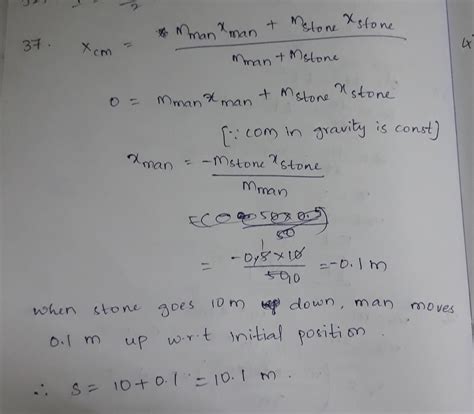 37. x_cm = m_man x_man + m_stone x_stone / m_man + m_stone
0 = m_man x_man + m_stone x_stone
[∵ com in gravity is const]
x_man = -m_stone x_stone / m_man
= -0.5 × 10 / 50 = -0.1 m
when stone goes 10 m down, man moves
0.1 m up w.r.t initial position.
∴ s = 10 + 0.1 = 10.1 m.